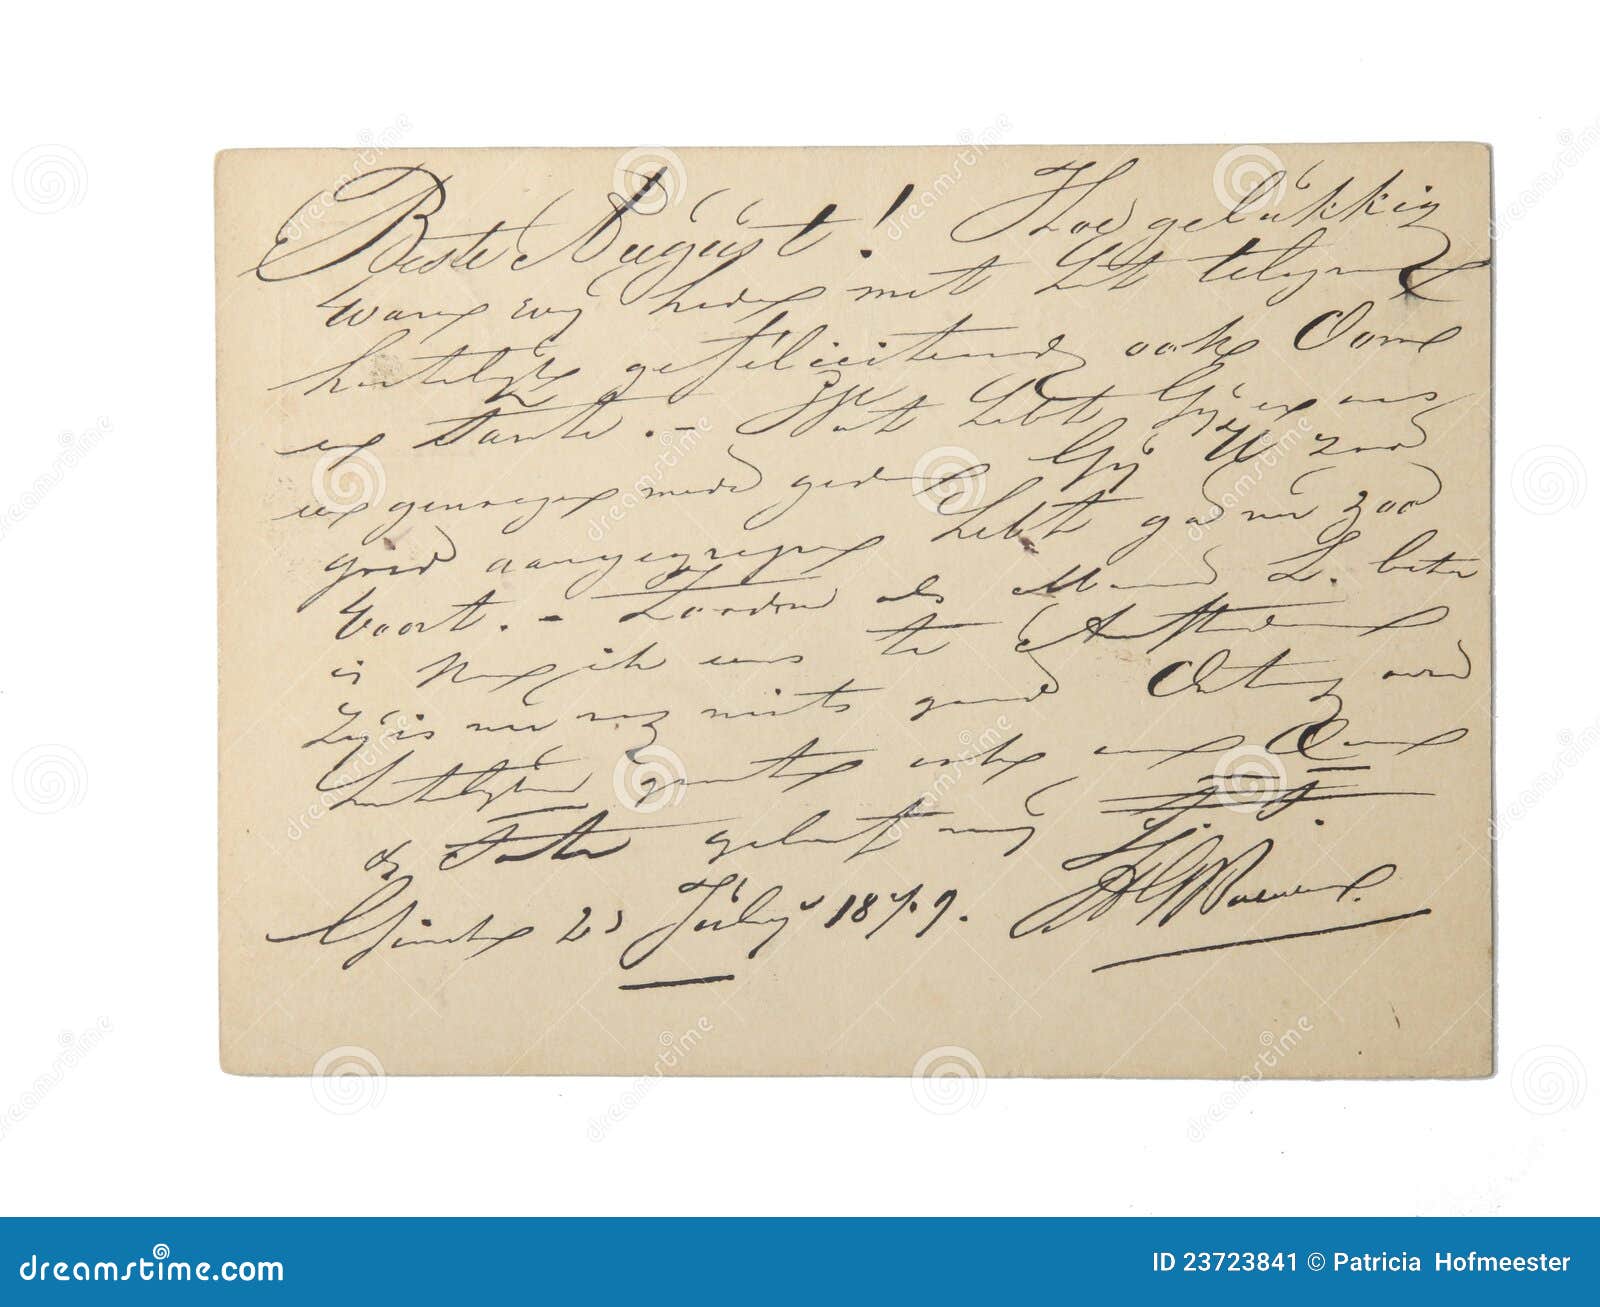 Beste August! Hoe gelukkig
waren wij heden met het telegram
hartelijk gefeliciteerd ook Oome
en Tante. - Wat hebt Gij en ons
een genoegen mede gedaan Gij U zoo
goed aangegrepen hebt ga nu zoo
voort. - Zoodra als Mama L. beter
is kom ik eens te Amsterdam
Zij is nu nog niets goed Ontvang
hartelijke groeten ook aan Oome
& Tante geloof mij t. t.
23 July 1879.
dreamstime.com
ID 23723841 © Patricia Hofmeester